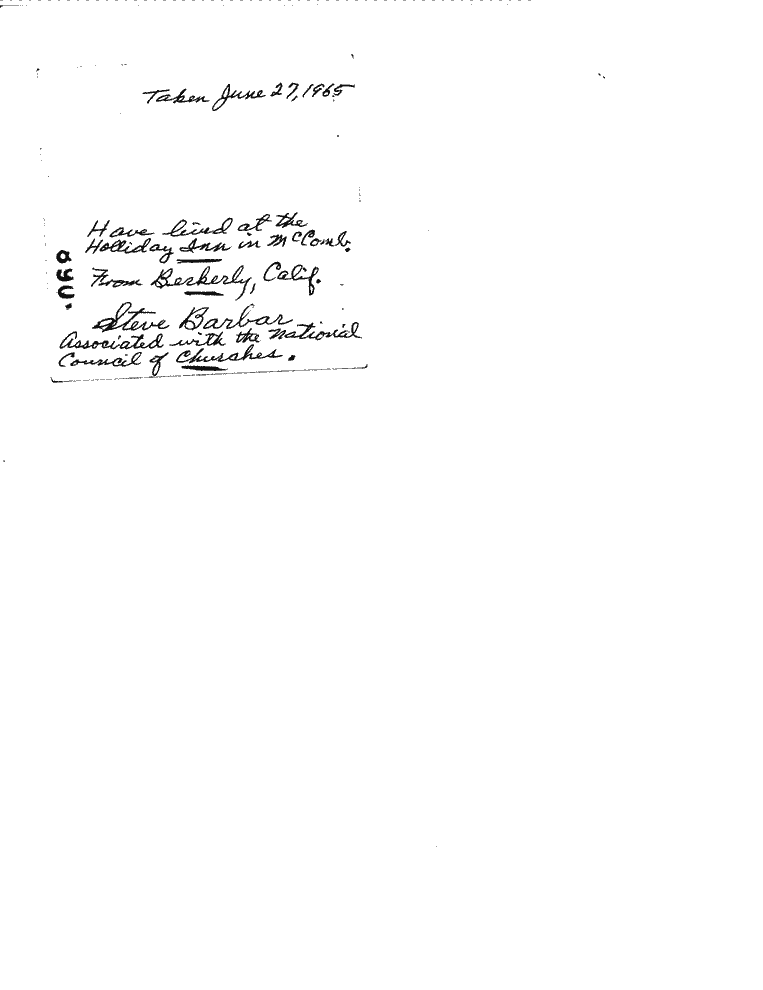 Taken June 27, 1965
Have lived at the
Holliday Inn in McComb.
From Berkerly, Calif.
Steve Barbar
Associated with the National
Council of Churches.